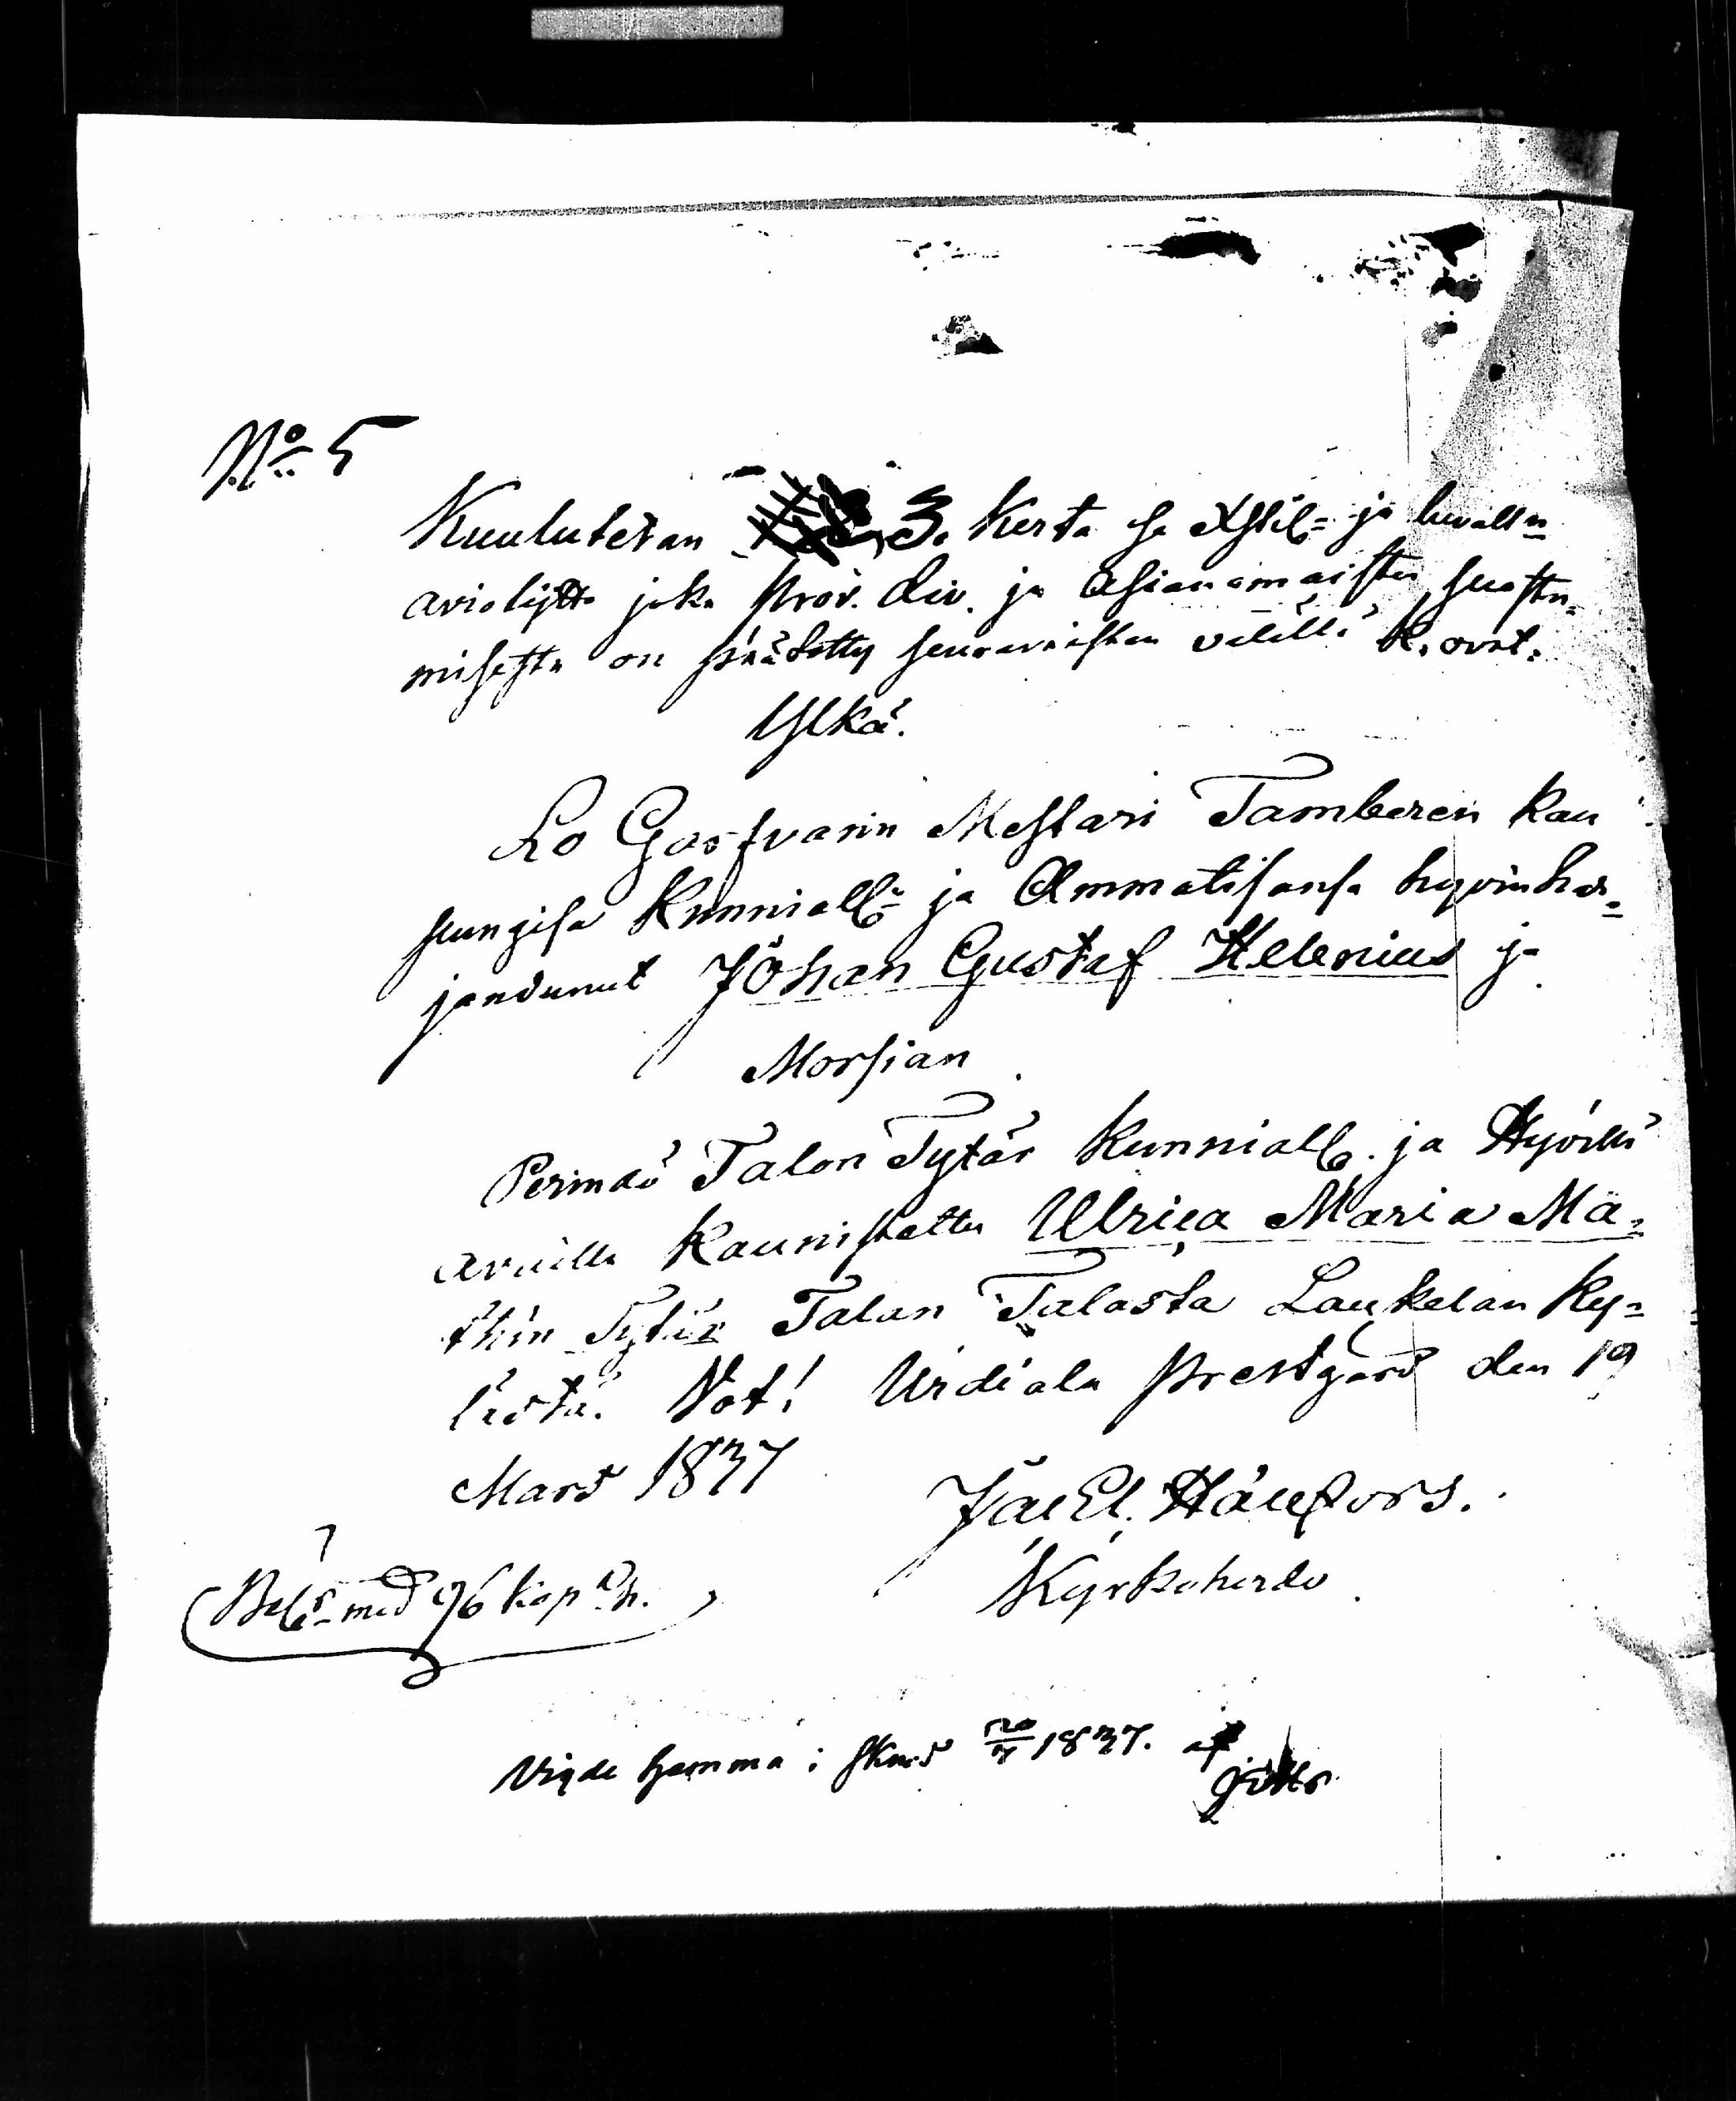 No 5
Kuulutetan 3. kerta se Xstil= ja luvallin
avioliitto joka prov. div. ja Asianomaisten suostu=
misesta on päätetty seuraavaisten välillä k. ovat.
Ylkä.
Lo Garfvarin Mestari Tambere{i}n kau
pungisa Kunniall= ja Ammatisansa hyvin har=
jandunut Johan Gustaf Helenius ja
Morsian
Perindö Talon Tytär kunniall. ja Hyvillä
avuilla kaunistettu Ulrica Maria Ma=
thin Tytär Talan Talosta Laukelan ky=
lästä. Not! Urdiala Prestgård den 19
Mars 1837
Jac El. Hänfors.
Kyrkoherde
Bel. med 96 kop.
Vigde hemma i 1837. af